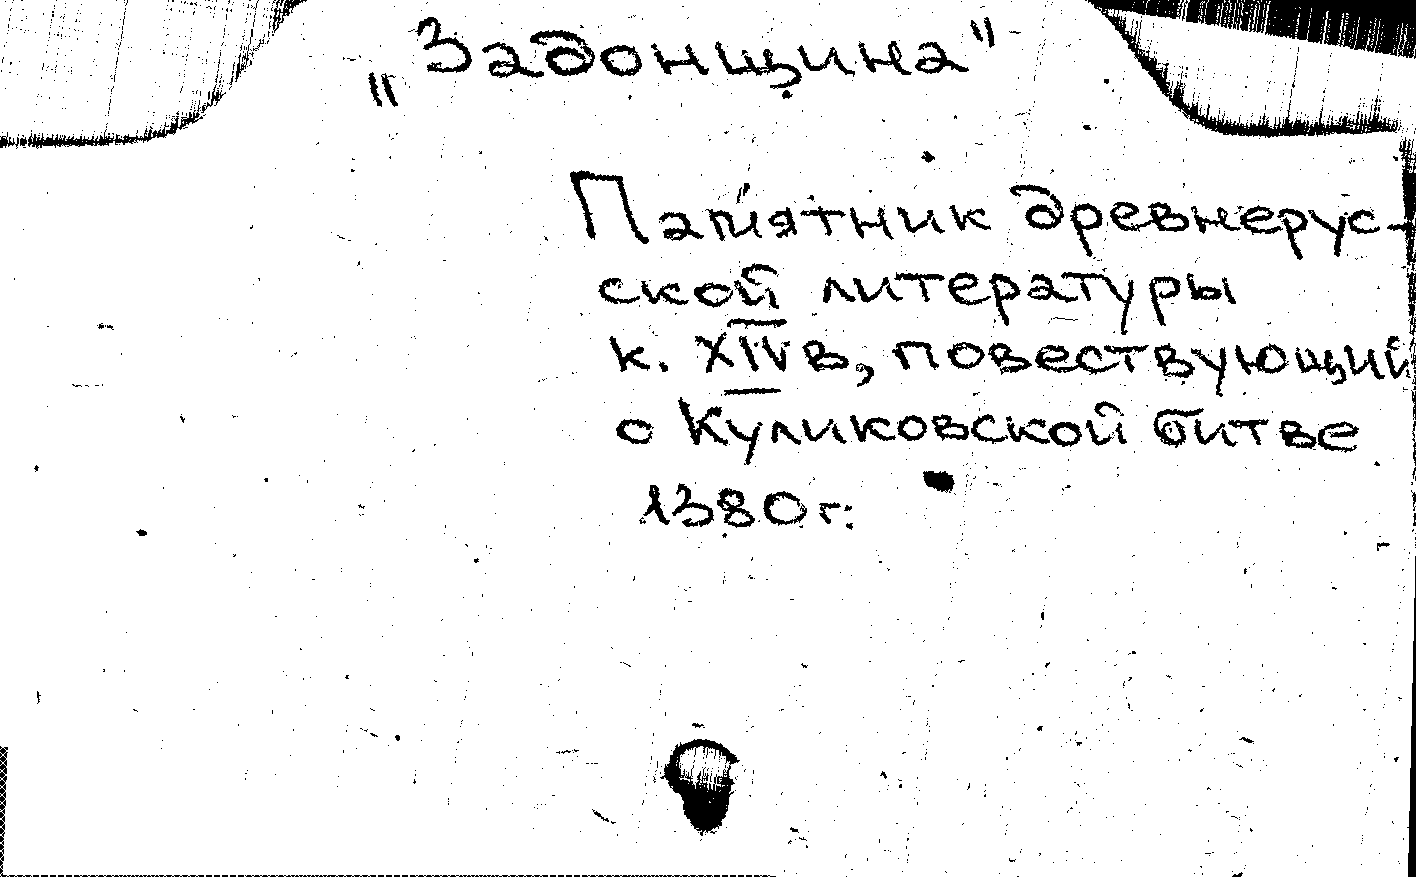 „Задонщина"
Памятник древнерус-
ской литературы
к. XIV в, повествующий
о Куликовской битве
1380 г.